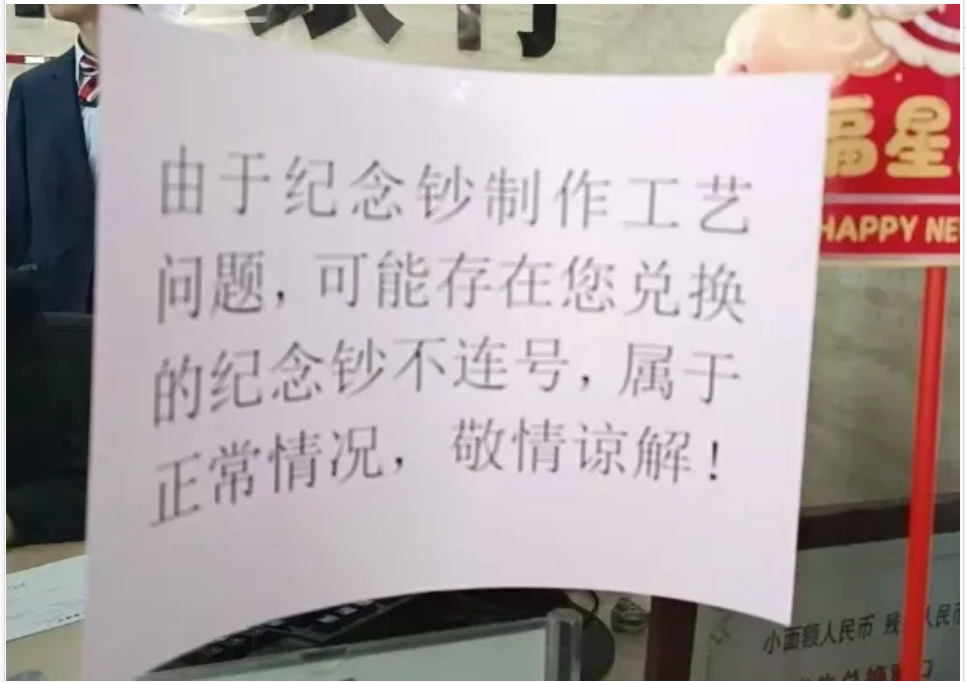 由于纪念钞制作工艺
问题，可能存在您兑换
的纪念钞不连号，属于
正常情况，敬情谅解！
福星
HAPPY NE
小面额人民币 残 人民币